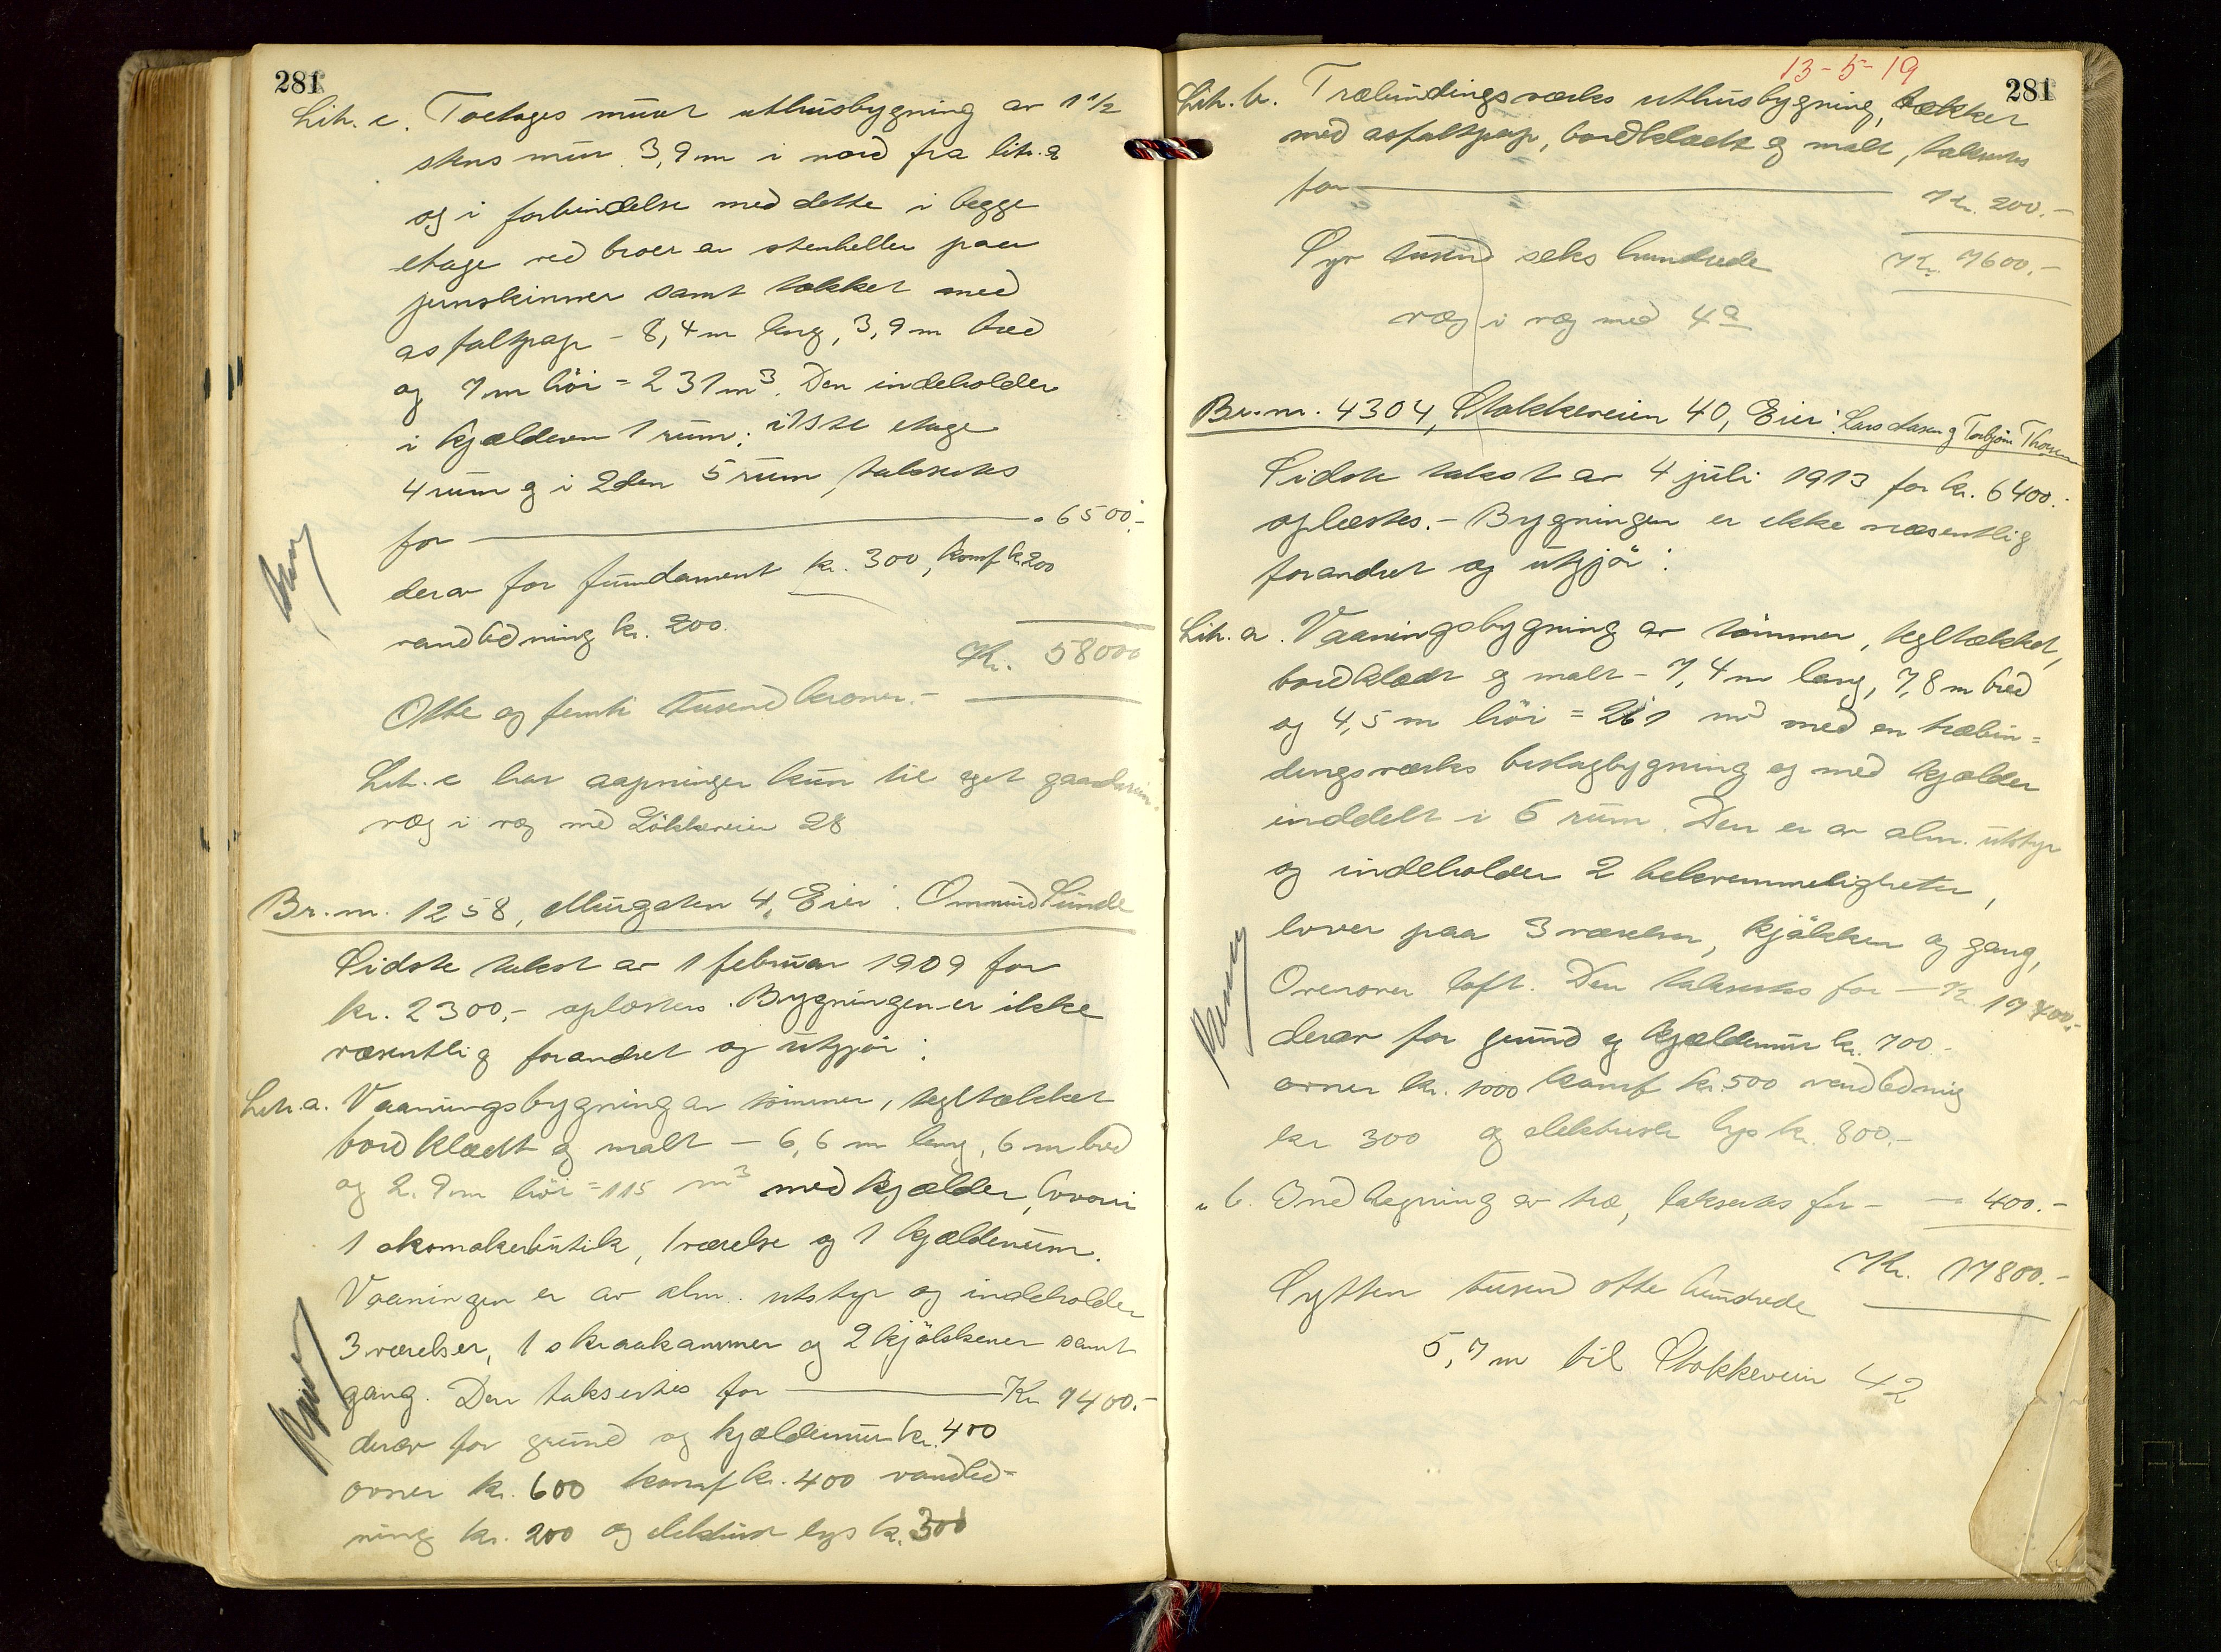 281
Lit. c. Toetages muret uthusbygning av 1 1/2
stens mur 3,9 m i nord fra lit. a
og i forbindelse med dette i begge
etage ved broer av stenheller paa
jernskinner samt tækket med
asfaltpap - 8,4 m lang, 3,9 m bred
og 7 m höi = 231 m³. Den indeholder
i kjælderen 1 rum; i 1ste etage
4 rum og i 2den 5 rum, takseres
for — " 6500.-
derav for fundament kr. 300, komf kr. 200
vandledning kr. 200.
Kr. 58000
Otte og femti tusend kroner.-
Lit. c har aapninger kun til eget gaardsrum.
væg i væg med Lökkeveien 28
Br. nr. 1258, Murgaten 4, Eier: Ommund Sunde
Sidste takst av 1 februar 1909 for
kr. 2300,- oplæstes. Bygningen er ikke
væsentlig forandret og utgjör:
Lit. a. Vaaningsbygning av tömmer, tegltækket
bordklædt og malt - 6,6 m lang, 6 m bred
og 2,9 m höi = 115 m³ med kjælder, hvori
1 skomakerbutik, 1 værelse og 1 kjælderrum.
Vaaningen er av alm. utstyr og indeholder
3 værelser, 1 skraakammer og 2 kjökkener samt
gang. Den takseres for — Kr 7400.-
derav for grund og kjældermur kr. 400
ovner kr. 600 komf kr. 400 vandled-
ning kr. 200 og elektrisk lys kr. 300
13-5-19
281
Lit. b. Træbindingsværks uthusbygning, tækket
med asfaltpap, bordklædt og malt, takseres
for — Kr. 200.-
Syv tusend seks hundrede Kr. 7600.-
væg i væg med 4a
Br. nr. 4304, Stokkeveien 40, Eier: Lars Aasen og Torbjörn Thorsen
Sidste takst av 4 juli 1913 for kr. 6400.-
oplæstes.- Bygningen er ikke væsentlig
forandret og utgjör:
Lit. a. Vaaningsbygning av tömmer, tegltækket,
bordklædt og malt - 7,4 m lang, 7,8 m bred
og 4,5 m höi = 261 m³ med en træbin=
dingsværks bislagbygning og med kjælder
inddelt i 5 rum. Den er av alm. utstyr
og indeholder 2 bekvemmeligheter,
hver paa 3 værelser, kjökken og gang,
Ovenover loft. Den takseres for — Kr. 17400.-
derav for grund og kjældermur kr. 700.-
ovner kr. 1000 komf kr. 500 vandledning
kr 300 og elektrisk lys kr. 800.-
" b. Indhegning av træ, takseres for - — " 400.-
Kr. 17800.-
Sytten tusend otte hundrede
5,7 m til Stokkeveien 42